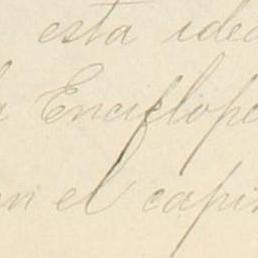 esta idea
a Enciclope
en el capi